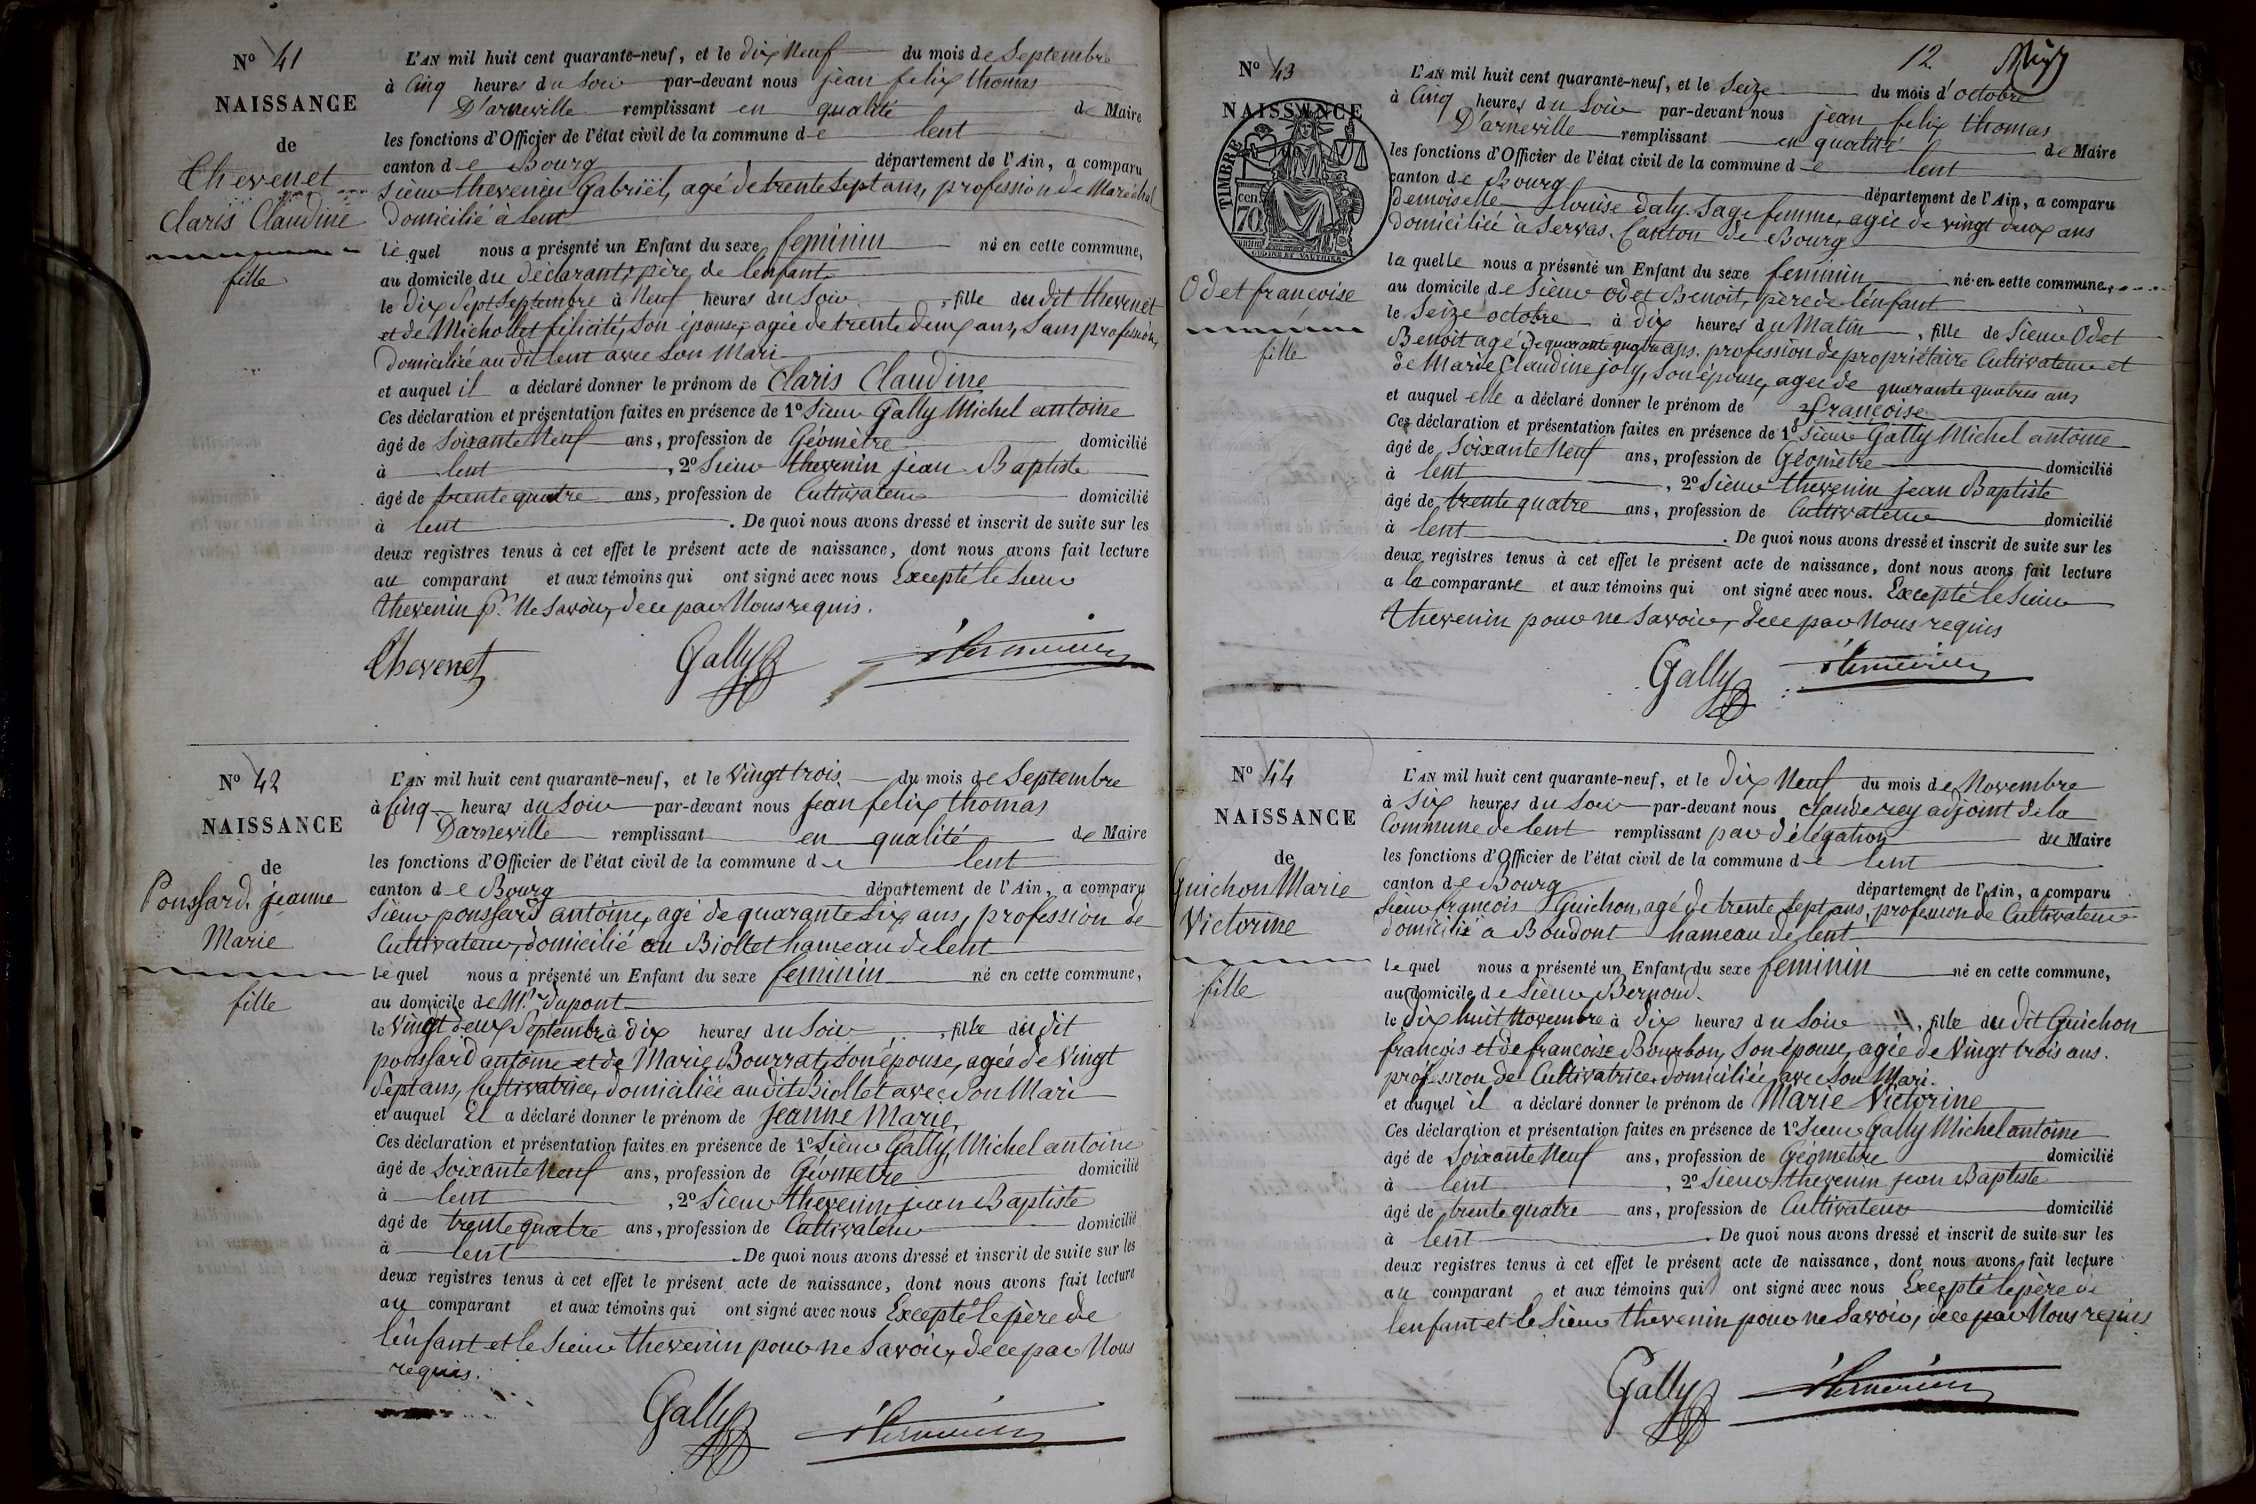 Nº 41
NAISSANCE
de
Thevenet
Claris Claudine
fille
L'AN mil huit cent quarante-neuf, et le dix Neuf du mois de Septembre
à Cinq heures du Soir par-devant nous jean felix thomas
D'arneville remplissant en qualité de Maire
les fonctions d'Officier de l'état civil de la commune de lent
canton de Bourg département de l'Ain, a comparu
Sieur thevenet Gabriël, agé de trente Sept ans, profession de Maréchal
Domicilié à lent
le quel nous a présenté un Enfant du sexe feminin né en cette commune,
au domicile du déclarant, père de l'enfant
le dix Sept Septembre à Neuf heures du Soir, fille du dit thevenet
et de Michollet félicité, Son épouse, agée de trente deux ans, Sans profession,
Domiciliée au dit lent avec Son Mari
et auquel il a déclaré donner le prénom de Claris Claudine
Ces déclaration et présentation faites en présence de 1º Sieur Gally Michel antoine
âgé de Soixante Neuf ans, profession de Géomètre domicilié
à lent, 2º Sieur thevenin jean Baptiste
âgé de trente quatre ans, profession de Cultivateur domicilié
à lent. De quoi nous avons dressé et inscrit de suite sur les
deux registres tenus à cet effet le présent acte de naissance, dont nous avons fait lecture
au comparant et aux témoins qui ont signé avec nous Excepté le Sieur
thevenin pr. Ne Savoir, de ce par Nous requis.
Thevenet Gally
Nº 42
NAISSANCE
de
Ponssard jeanne
Marie
fille
L'AN mil huit cent quarante-neuf, et le Vingt trois du mois de Septembre
à Cinq heures du Soir par-devant nous jean felix thomas
Darneville remplissant en qualité de Maire
les fonctions d'Officier de l'état civil de la commune de lent
canton de Bourg département de l'Ain, a comparu
Sieur ponssard antoine, agé de quarante Six ans, profession de
Cultivateur, domicilié au Biollet hameau de lent
le quel nous a présenté un Enfant du sexe feminin né en cette commune,
au domicile de Mr dupont
le Vingt deux Septembre à dix heures du Soir, fille du dit
ponssard antoine et de Marie Bourrat, Son épouse, agée de Vingt
Sept ans, Cultivatrice, domiciliée au dit Biollet avec Son Mari
et auquel il a déclaré donner le prénom de Jeanne Marie
Ces déclaration et présentation faites en présence de 1º Sieur Gally, Michel antoine
âgé de Soixante Neuf ans, profession de Géomètre domicilié
à lent, 2º Sieur thevenin jean Baptiste
âgé de trente quatre ans, profession de Cultivateur domicilié
à lent. De quoi nous avons dressé et inscrit de suite sur les
deux registres tenus à cet effet le présent acte de naissance, dont nous avons fait lecture
au comparant et aux témoins qui ont signé avec nous Excepté le père de
l'enfant et le Sieur thevenin pour ne Savoir, de ce par Nous
requis.
Gally
12
Nº 43
NAISSANCE
TIMBRE
70 cen
Odet françoise
fille
L'AN mil huit cent quarante-neuf, et le Seize du mois d'octobre
à Cinq heures du Soir par-devant nous jean felix thomas
D'arneville remplissant en qualité de Maire
les fonctions d'Officier de l'état civil de la commune de lent
canton de Bourg département de l'Ain, a comparu
demoiselle louise daly Sage femme, agée de vingt deux ans
domiciliée à Servas, Canton de Bourg
la quelle nous a présenté un Enfant du sexe feminin né en cette commune,
au domicile de Sieur Odet Benoit, père de l'enfant
le Seize octobre à dix heures du Matin, fille de Sieur Odet
Benoit agé de quarante quatre ans, profession de propriétaire Cultivateur et
de Marie Claudine joly, Son épouse, agée de quarante quatres ans
et auquel elle a déclaré donner le prénom de françoise
Ces déclaration et présentation faites en présence de 1º Sieur Gally Michel antoine
âgé de Soixante Neuf ans, profession de Géomètre domicilié
à lent, 2º Sieur thevenin jean Baptiste
âgé de trente quatre ans, profession de Cultivateur domicilié
à lent. De quoi nous avons dressé et inscrit de suite sur les
deux registres tenus à cet effet le présent acte de naissance, dont nous avons fait lecture
a la comparante et aux témoins qui ont signé avec nous. Excepté le Sieur
thevenin pour ne Savoir, de ce par Nous requis
Gally
Nº 44
NAISSANCE
de
Guichon Marie
Victorine
fille
L'AN mil huit cent quarante-neuf, et le dix Neuf du mois de Novembre
à Six heures du Soir par-devant nous claude rey adjoint de la
Commune de lent remplissant par délégation de Maire
les fonctions d'Officier de l'état civil de la commune de lent
canton de Bourg département de l'Ain, a comparu
Sieur françois Guichon, agé de trente Sept ans, profession de Cultivateur
domicilié à Boudont hameau de lent
le quel nous a présenté un Enfant du sexe feminin né en cette commune,
au domicile de Sieur Bernoud.
le dix huit Novembre à dix heures du Soir, fille du dit Guichon
françois et de françoise Bourbon, Son épouse, agée de Vingt trois ans.
profession de Cultivatrice domiciliée avec Son Mari.
et auquel il a déclaré donner le prénom de Marie Victorine
Ces déclaration et présentation faites en présence de 1º Sieur Gally Michel antoine
âgé de Soixante Neuf ans, profession de Géomètre domicilié
à lent, 2º Sieur thevenin jean Baptiste
âgé de trente quatre ans, profession de Cultivateur domicilié
à lent. De quoi nous avons dressé et inscrit de suite sur les
deux registres tenus à cet effet le présent acte de naissance, dont nous avons fait lecture
au comparant et aux témoins qui ont signé avec nous Excepté le père de
l'enfant et le Sieur thevenin pour ne Savoir, de ce par Nous requis
Gally